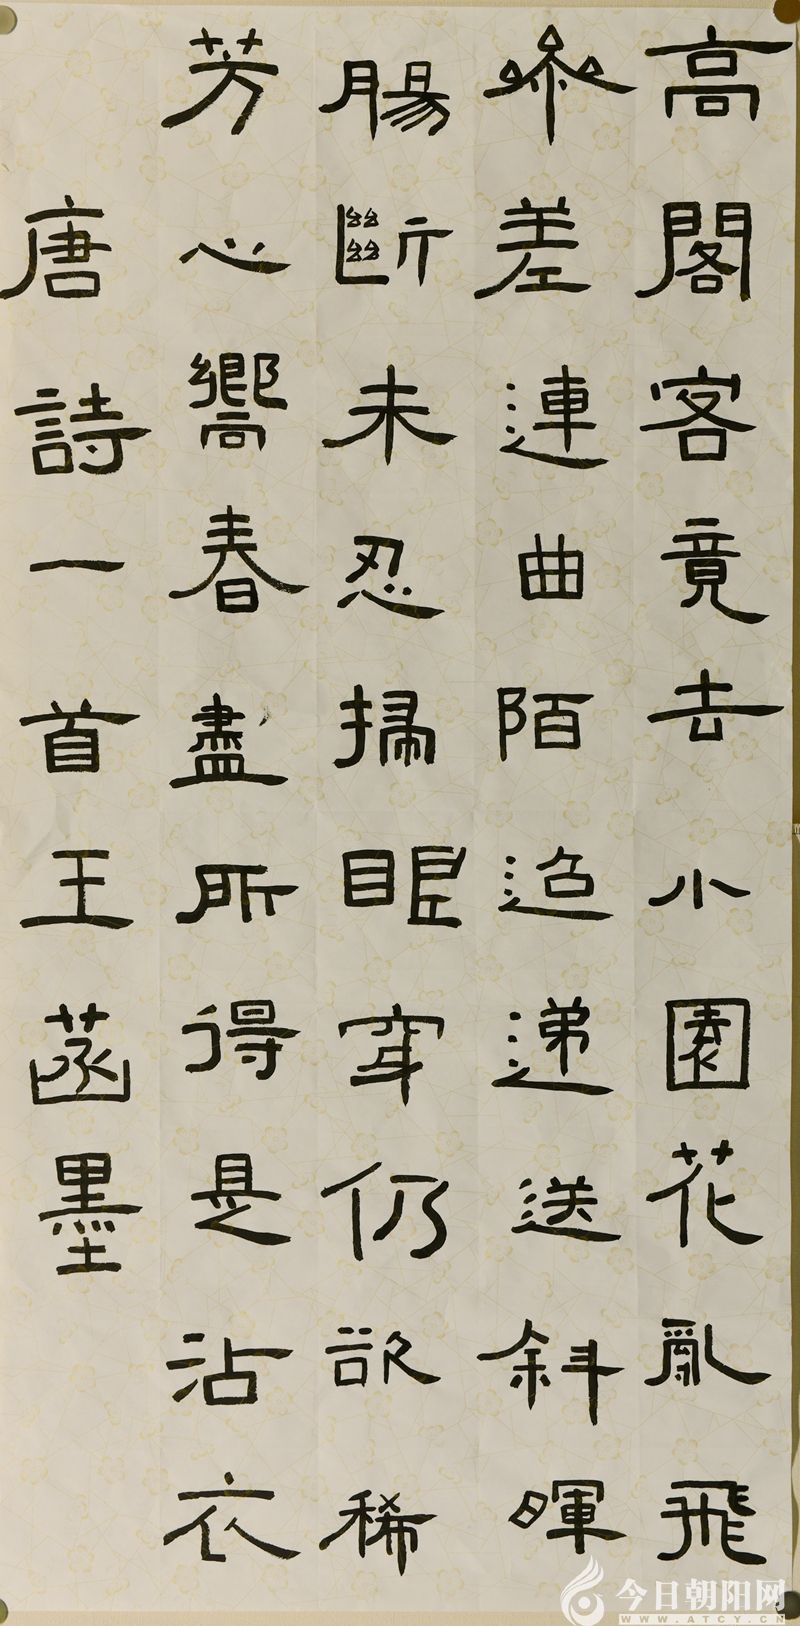 高閣客竟去小園花亂飛
參差連曲陌迢遞送斜暉
腸斷未忍掃眼穿仍欲稀
芳心嚮春盡所得是沾衣
唐詩一首王菡墨
今日朝阳网
WWW.ATCY.CN